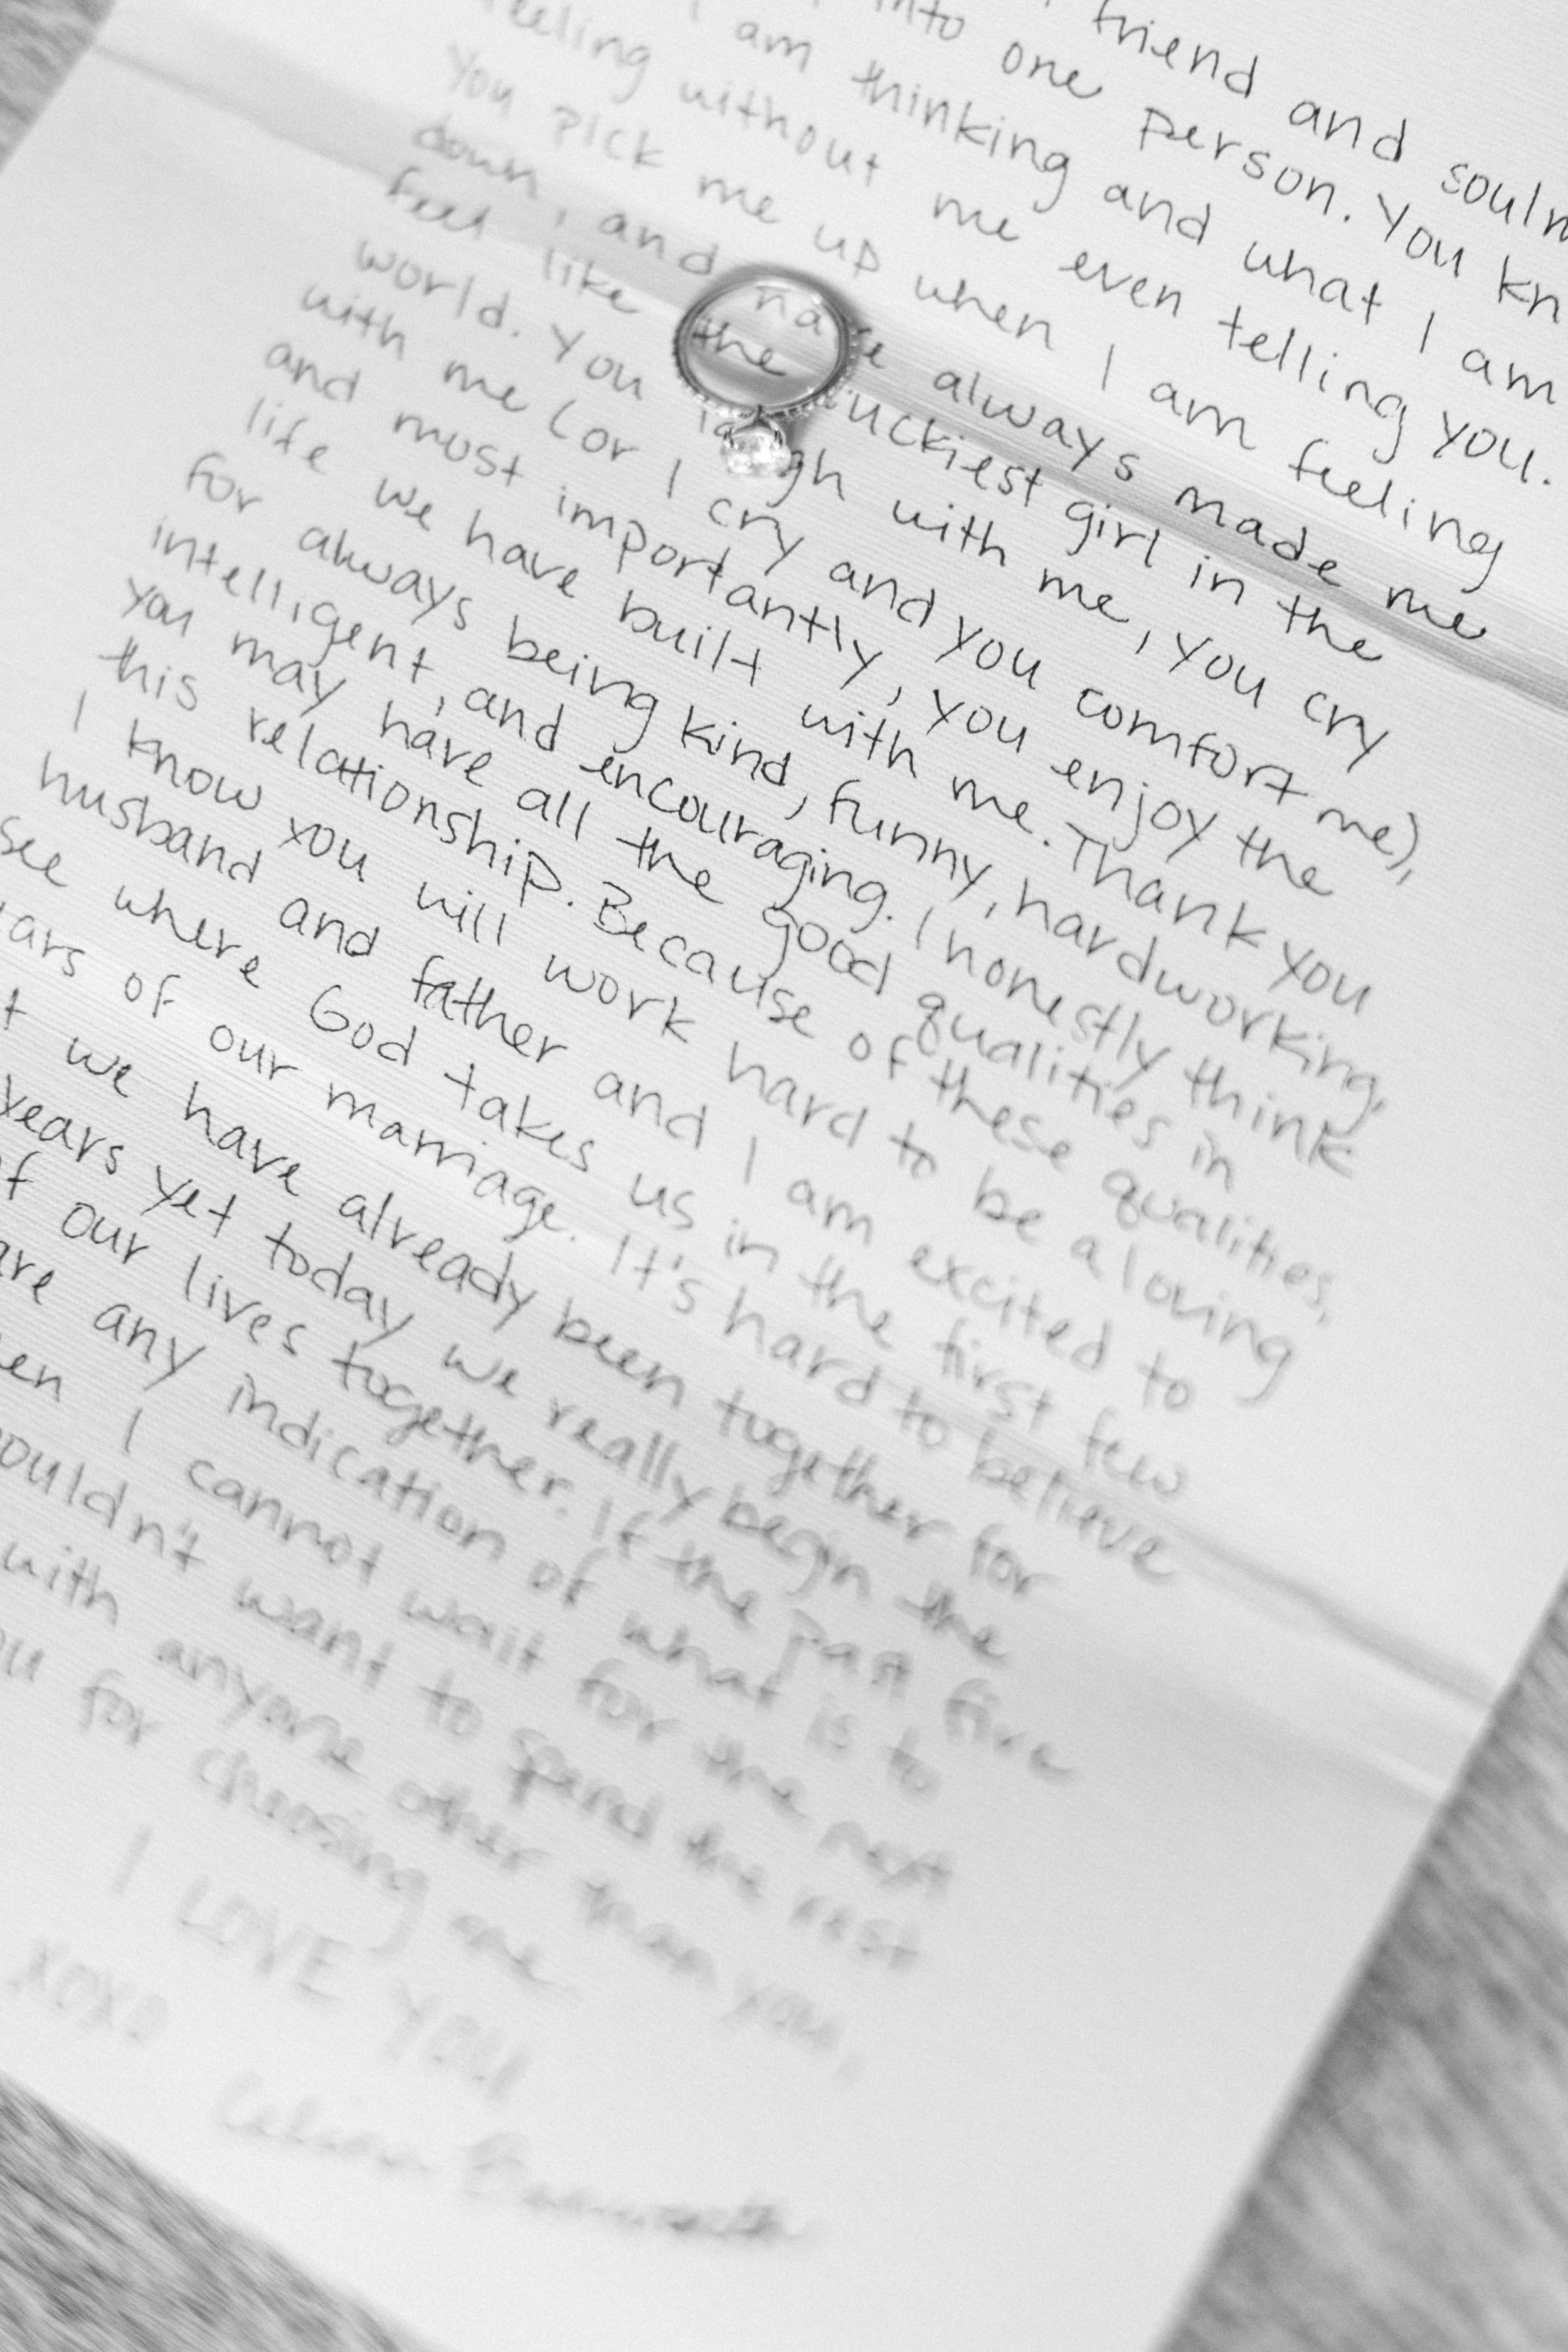 friend and
into one person. You
I am thinking and what I am
feeling without me even telling you.
You pick me up when I am feeling
down, and have always made me
feel like the luckiest girl in the
world. You laugh with me, you cry
with me (or I cry and you comfort me),
and most importantly, you enjoy the
life we have built with me. Thank you
for always being kind, funny, hardworking,
intelligent, and encouraging. I honestly think
you may have all the good qualities in
this relationship. Because of these qualities,
I know you will work hard to be a loving
husband and father and I am excited to
see where God takes us in the first few
of our marriage. It's hard to believe
we have already been together for
years yet today we really begin the
our lives together. If the past five
any indication of what is to
I cannot wait for the next
want to spend the rest
with anyone other than you.
for choosing me
I LOVE YOU
XOXO